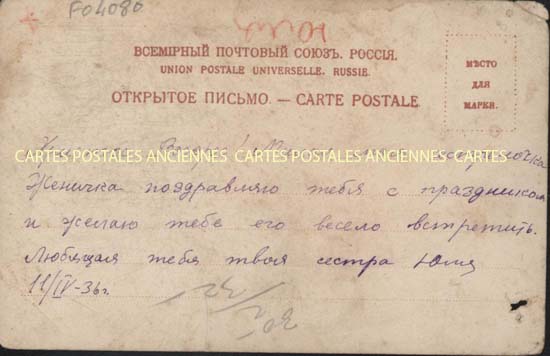 F04080
ВСЕМІРНЫЙ ПОЧТОВЫЙ СОЮЗЪ. РОССІЯ.
UNION POSTALE UNIVERSELLE. RUSSIE.
ОТКРЫТОЕ ПИСЬМО. — CARTE POSTALE.
МѢСТО
ДЛЯ
МАРКИ.
CARTES POSTALES ANCIENNES CARTES POSTALES ANCIENNES CARTES POSTALES ANCIENNES
Женичка поздравляю тебя с праздником
и желаю тебе его весело встретить.
Любящая тебя твоя сестра Юля
11/IV-36г.